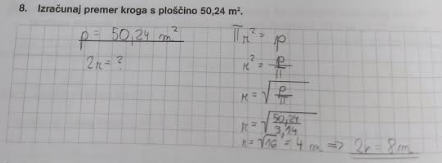 8. Izračunaj premer kroga s ploščino 50,24 m².
p = 50,24 m²
2r = ?
πr² = p
r² = p/π
r = √(p/π)
r = √(50,24/3,14)
r = √16 = 4 m ⇒ 2r = 8m